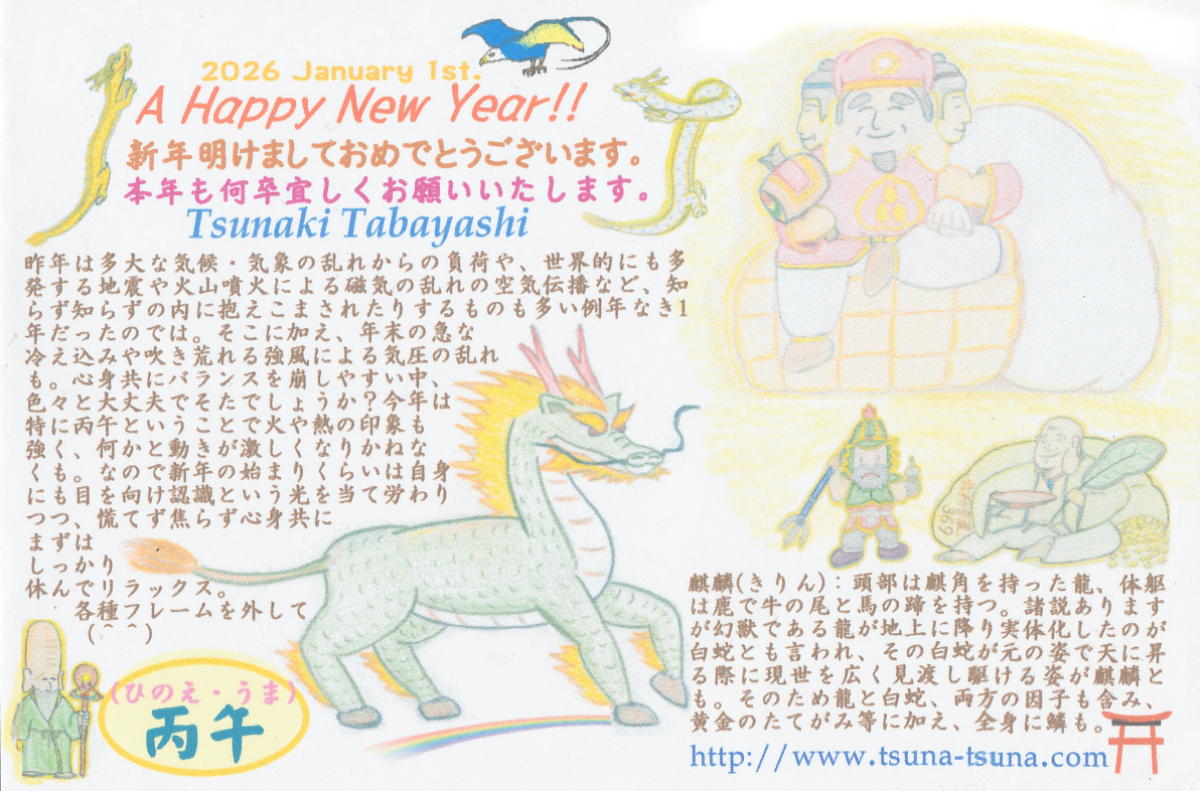 2026 January 1st.
A Happy New Year!!
新年明けましておめでとうございます。
本年も何卒宜しくお願いいたします。
Tsunaki Tabayashi
昨年は多大な気候・気象の乱れからの負荷や、世界的にも多
発する地震や火山噴火による磁気の乱れの空気伝播など、知
らず知らずの内に抱えこまされたりするものも多い例年なき1
年だったのでは。そこに加え、年末の急な
冷え込みや吹き荒れる強風による気圧の乱れ
も。心身共にバランスを崩しやすい中、
色々と大丈夫でそたでしょうか?今年は
特に丙午ということで火や熱の印象も
強く、何かと動きが激しくなりかねな
くも。なので新年の始まりくらいは自身
にも目を向け認識という光を当て労わり
つつ、慌てず焦らず心身共に
まずは
しっかり
休んでリラックス。
各種フレームを外して
(⌒⌒)
(ひのえ・うま)
丙午
369
麒麟(きりん):頭部は麒角を持った龍、体躯
は鹿で牛の尾と馬の蹄を持つ。諸説あります
が幻獣である龍が地上に降り実体化したのが
白蛇とも言われ、その白蛇が元の姿で天に昇
る際に現世を広く見渡し駆ける姿が麒麟と
も。そのため龍と白蛇、両方の因子も含み、
黄金のたてがみ等に加え、全身に鱗も。
http://www.tsuna-tsuna.com